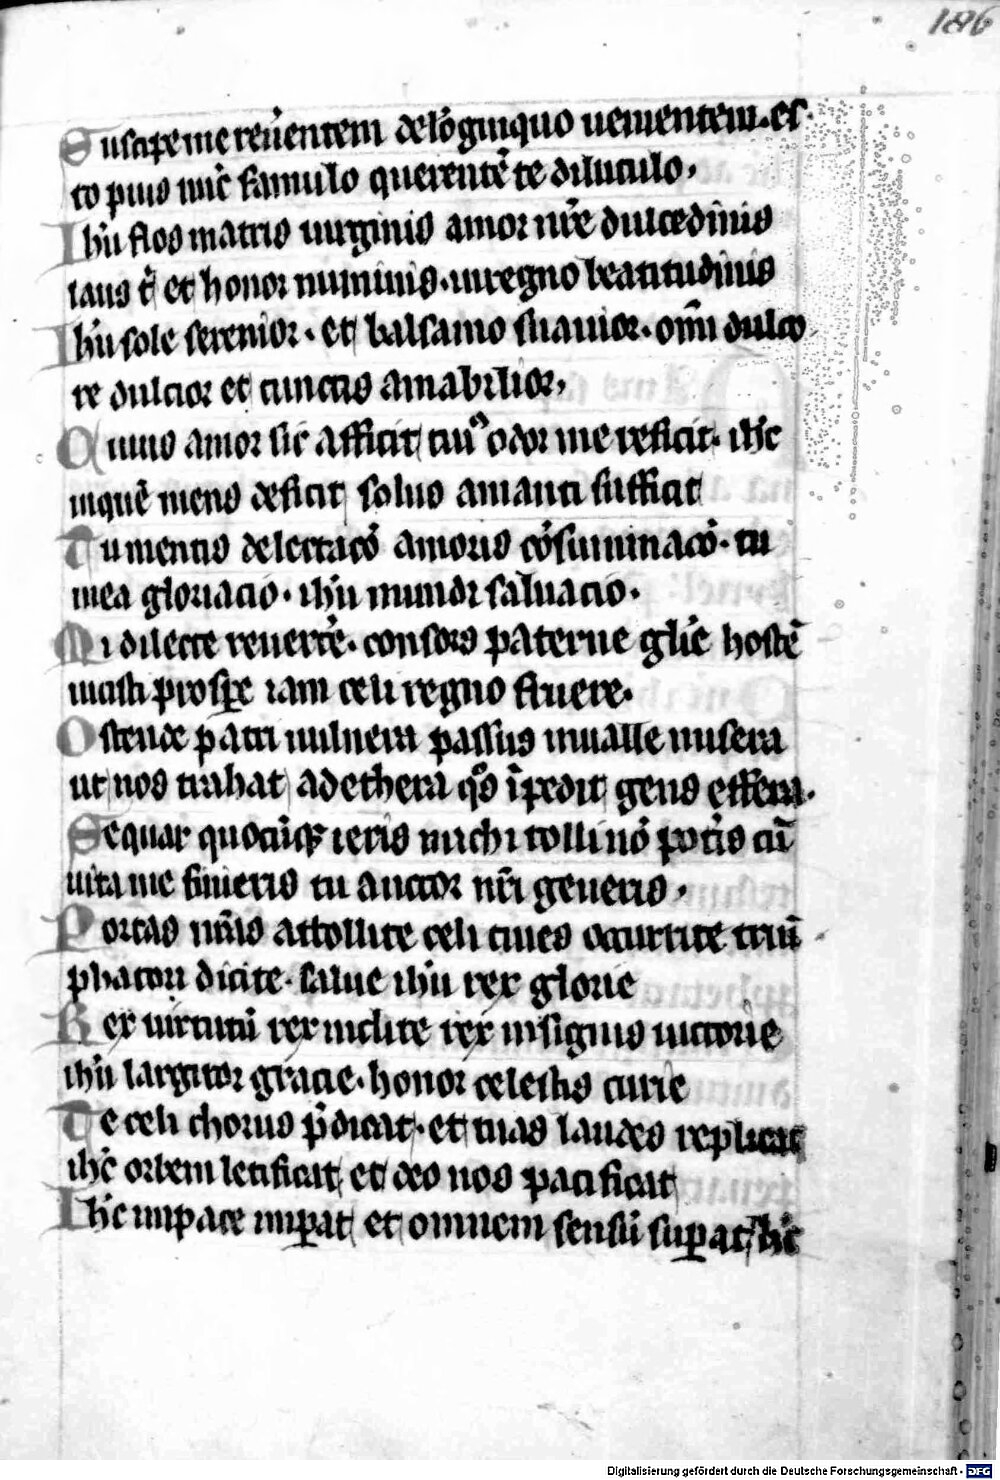 186
Suscipe me reūentem de lōginquo uenientem es
to pius nūc famulo querentē te diluculo,
Ihū flos matris uirginis amor nr̄e dulcedinis
laus t̄ et honor numinis. in regno beatitudinis
Ihū sole serenior. et balsamo suauior. omī dulco
re dulcior et cunctis amabilior,
Cuius amor sic afficit cuiꝰ odor me reficit. ihc̄
in quē mens deficit solus amanti sufficit
Tu mentis delectacō amoris cōsummacō. tu
mea gloriacio. ihū mundi saluacio.
Mi dilecte reuertē. consors paterne gl̄ie hostē
uicisti prospe iam celi regno fruere.
Ostende patri uulnera passus in ualle misera
ut nos trahat ad ethera qͦs īpedit gens effera.
Sequar quocūqꝫ ieris michi tolli nō pot̄is cū
uita me finieris tu auctor nr̄i generis,
Portas ur̄as attollite celi ciues occurrite triū
phatori dicite. salue ihū rex glorie
Rex uirtutū rex inclite rex insignis uictorie
ihū largitor gracie. honor celestis curie
Te celi chorus p̄dicat. et tuas laudes replicat
ihc̄ orbem letificat et deo nos pacificat
Ihc̄ in pace imꝑat et omnem sensū suꝑat, hic
Digitalisierung gefördert durch die Deutsche Forschungsgemeinschaft - DFG